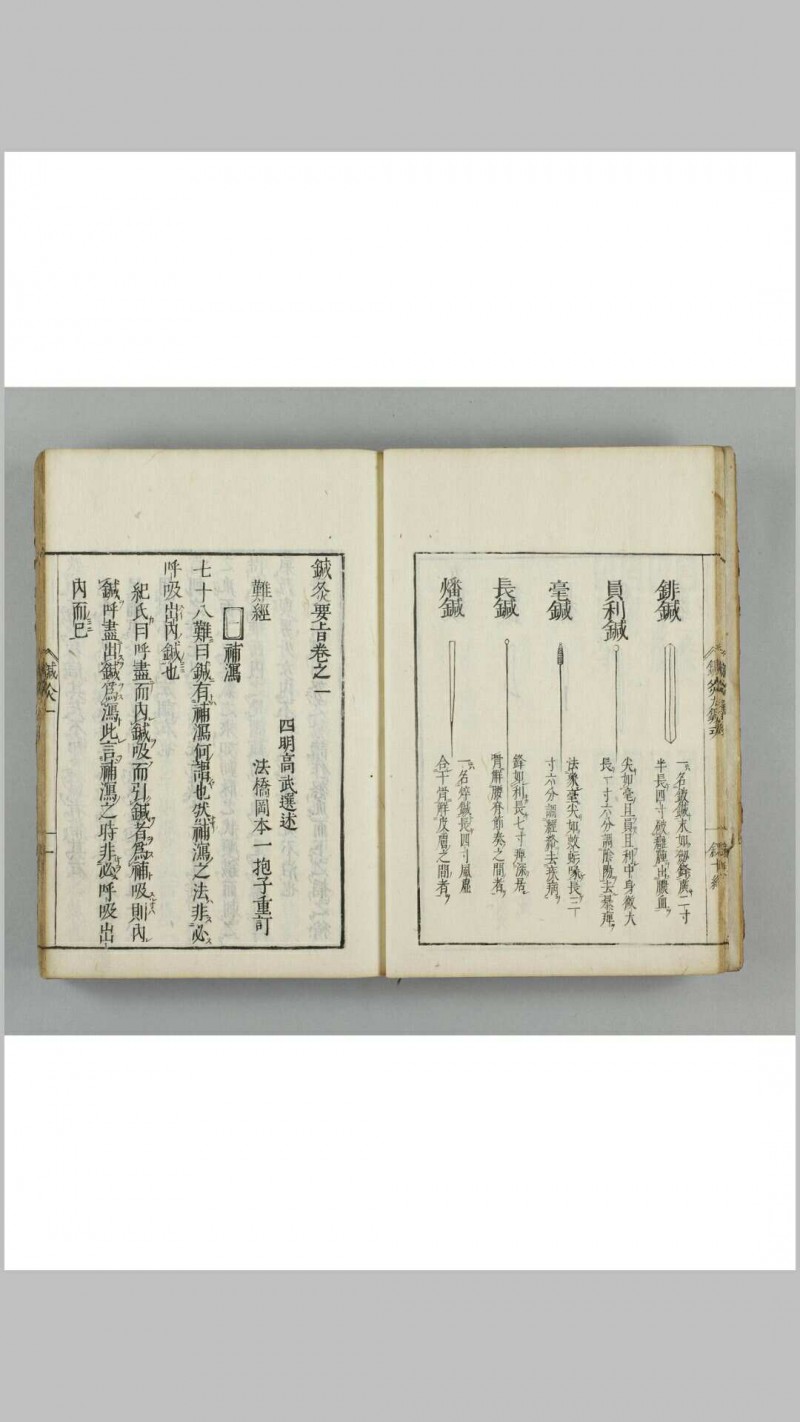 鈹鍼
一名鈹鍼末如劔鋒廣二寸
半長四寸破癰腫出膿血
員利鍼
尖如毫且員且利中身微大
長一寸六分調陰陽去暴痺
毫鍼
法象毫尖如蚊虻喙長三
寸六分調經絡去疾病
長鍼
鋒如利長七寸痺深居
骨解腰脊節腠之間者
燔鍼
一名焠鍼長四寸風虛
合于骨解皮膚之間者
鍼灸要旨卷之一
四明高武選述
法橋岡本一抱子重訂
難經
補瀉
七十八難曰鍼有補瀉何謂也然補瀉之法非必
呼吸出內鍼也
紀氏曰呼盡而內鍼吸而引鍼者爲補吸則內
鍼呼盡出鍼爲瀉此言補瀉之時非必呼吸出
內而已
鍼灸一